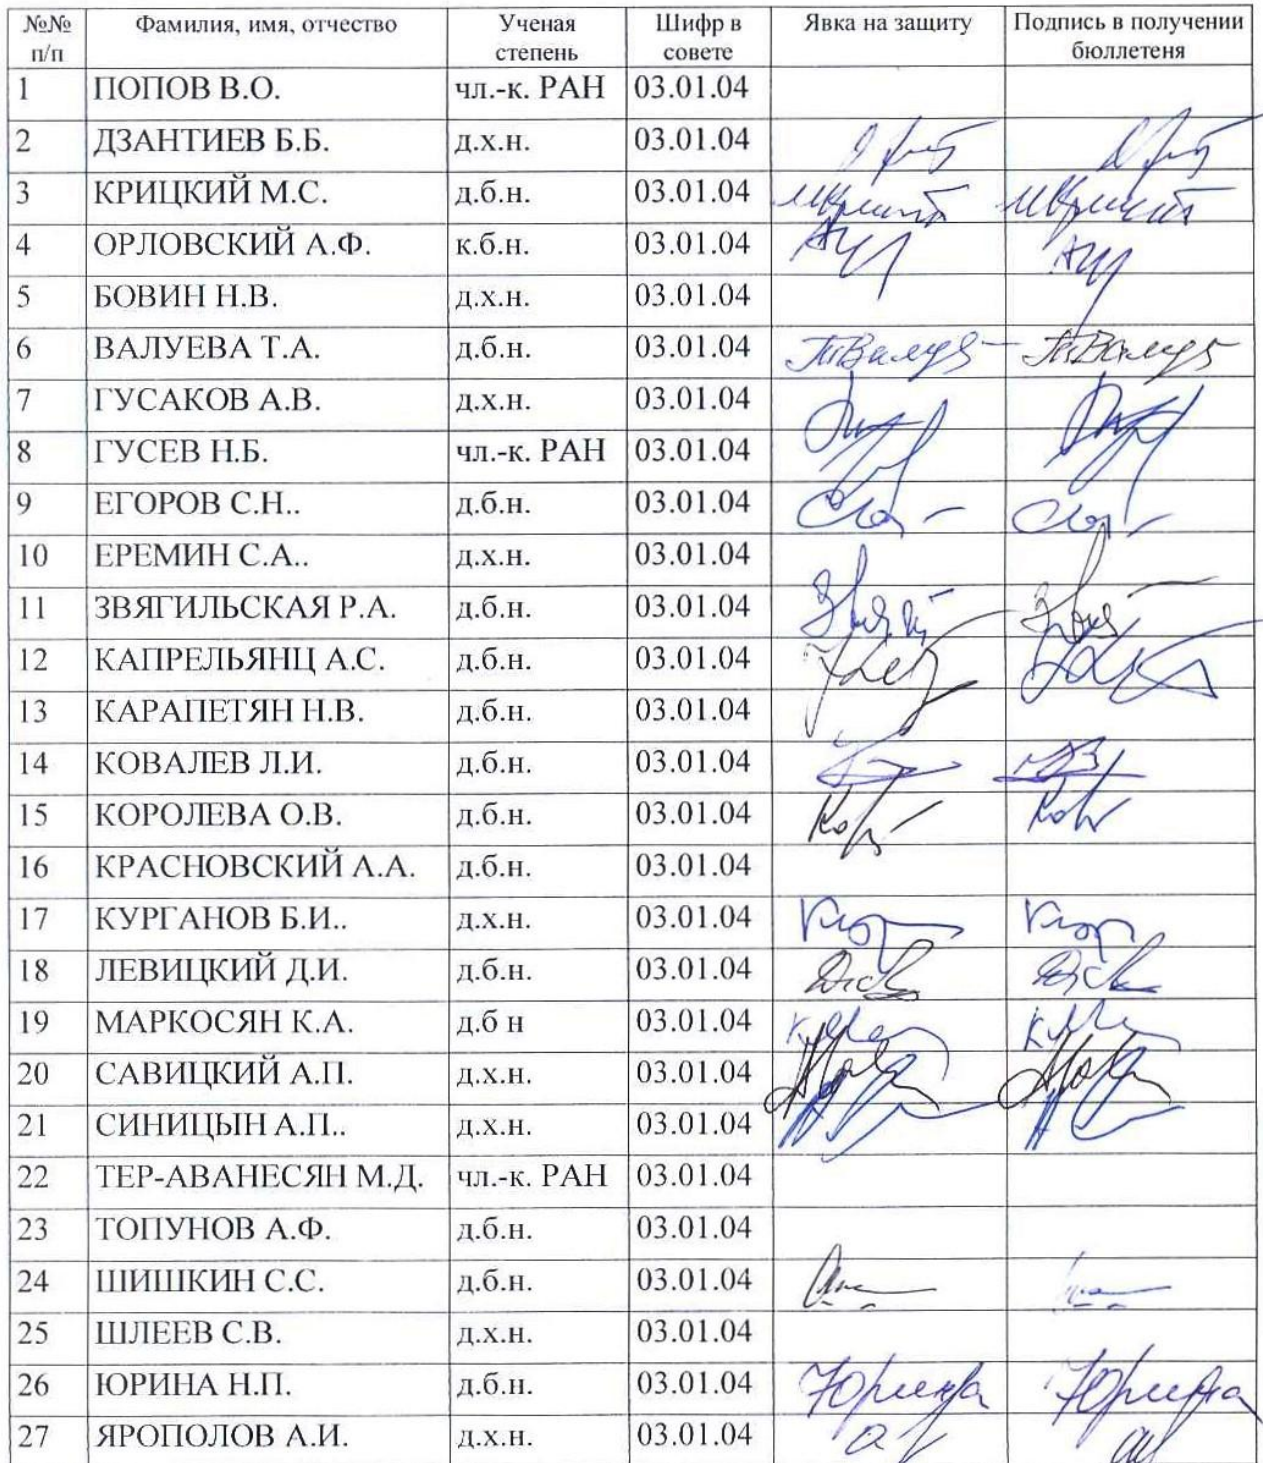 №№ п/п Фамилия, имя, отчество Ученая степень Шифр в совете Явка на защиту Подпись в получении бюллетеня
1 ПОПОВ В.О. чл.-к. РАН 03.01.04
2 ДЗАНТИЕВ Б.Б. д.х.н. 03.01.04
3 КРИЦКИЙ М.С. д.б.н. 03.01.04
4 ОРЛОВСКИЙ А.Ф. к.б.н. 03.01.04
5 БОВИН Н.В. д.х.н. 03.01.04
6 ВАЛУЕВА Т.А. д.б.н. 03.01.04
7 ГУСАКОВ А.В. д.х.н. 03.01.04
8 ГУСЕВ Н.Б. чл.-к. РАН 03.01.04
9 ЕГОРОВ С.Н.. д.б.н. 03.01.04
10 ЕРЕМИН С.А.. д.х.н. 03.01.04
11 ЗВЯГИЛЬСКАЯ Р.А. д.б.н. 03.01.04
12 КАПРЕЛЬЯНЦ А.С. д.б.н. 03.01.04
13 КАРАПЕТЯН Н.В. д.б.н. 03.01.04
14 КОВАЛЕВ Л.И. д.б.н. 03.01.04
15 КОРОЛЕВА О.В. д.б.н. 03.01.04
16 КРАСНОВСКИЙ А.А. д.б.н. 03.01.04
17 КУРГАНОВ Б.И.. д.х.н. 03.01.04
18 ЛЕВИЦКИЙ Д.И. д.б.н. 03.01.04
19 МАРКОСЯН К.А. д.б н 03.01.04
20 САВИЦКИЙ А.П. д.х.н. 03.01.04
21 СИНИЦЫН А.П.. д.х.н. 03.01.04
22 ТЕР-АВАНЕСЯН М.Д. чл.-к. РАН 03.01.04
23 ТОПУНОВ А.Ф. д.б.н. 03.01.04
24 ШИШКИН С.С. д.б.н. 03.01.04
25 ШЛЕЕВ С.В. д.х.н. 03.01.04
26 ЮРИНА Н.П. д.б.н. 03.01.04
27 ЯРОПОЛОВ А.И. д.х.н. 03.01.04